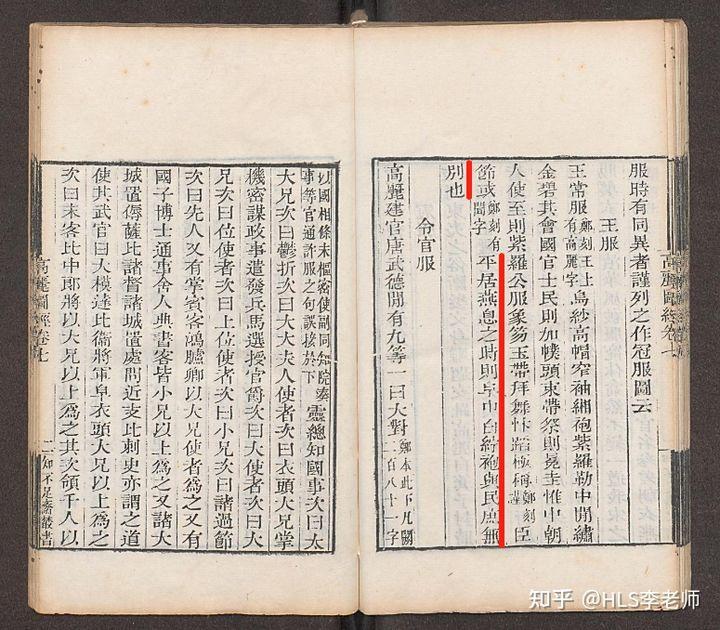 服時有同異者謹列之作冠服圖云
王服
王常服鄭刻王上有高麗字烏紗高帽窄袖緗袍紫羅勒巾閒繡
金碧其會國官士民則加幞頭束帶祭則冕圭惟中朝
人使至則紫羅公服象笏玉帶拜舞忭蹈極稱鄭刻謹臣
節或鄭刻有聞字平居燕息之時則皁巾白紵袍與民庶無
別也
令官服
高麗建官唐武德閒有九等一曰大對鄭本此下凡闕二百八十一字
高麗圖經卷七
以國相條末樞密使副同知院奏事等官通許服之句誤接於下靈總知國事次曰太
大兄次曰鬱折次曰太大夫人使者次曰衣頭大兄掌
機密謀政事遣發兵馬選授官爵次曰大使者次曰大
兄次曰位使者次曰上位使者次曰小兄次曰諸過節
次曰先人又有掌賓客鴻臚卿以大兄使者爲之又有
國子博士通事舍人典書客皆小兄以上爲之又諸大
城置傉薩比諸督諸城置處閭近支比刺史亦謂之道
使其武官曰大模達比衞將軍皁衣頭大兄以上爲之
次曰末客比中郎將以大兄以上爲之其次領千人以
高麗圖經卷七
二 知不足齋叢書
知乎 @HLS李老师